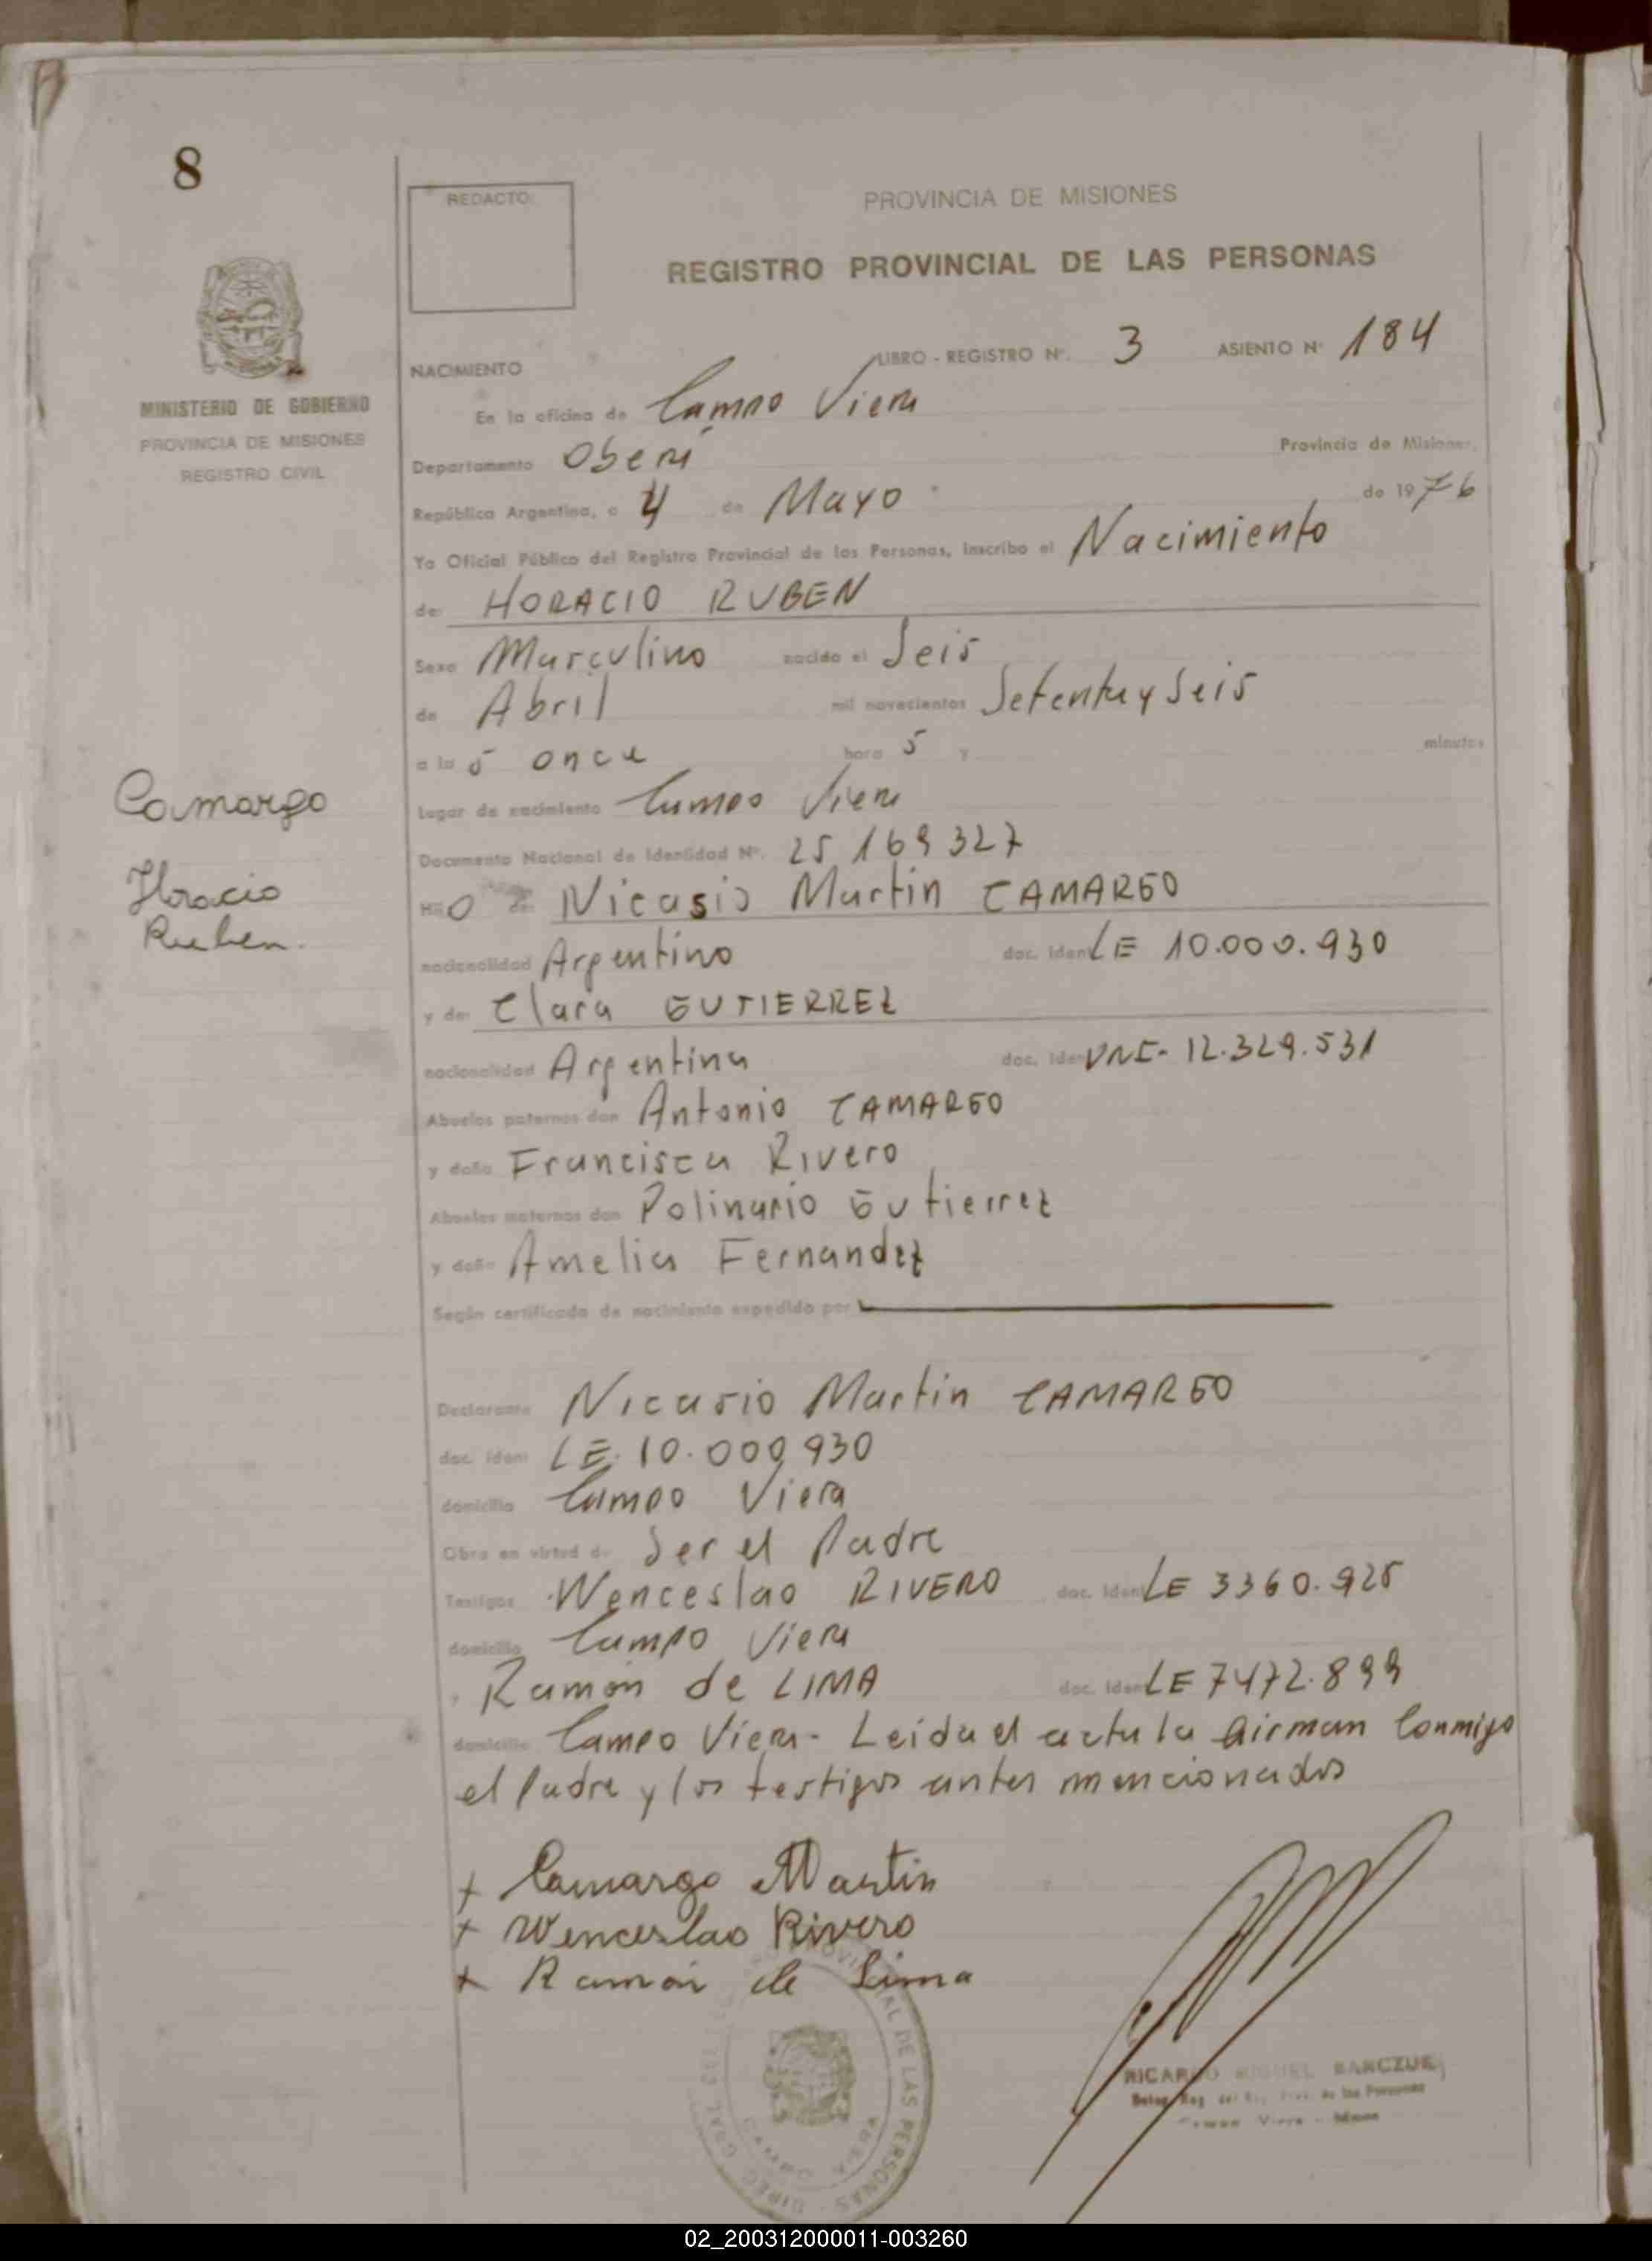 8
REDACTO:
PROVINCIA DE MISIONES
REGISTRO PROVINCIAL DE LAS PERSONAS
MINISTERIO DE GOBIERNO
PROVINCIA DE MISIONES
REGISTRO CIVIL
LIBRO - REGISTRO Nº. 3 ASIENTO Nº 184
NACIMIENTO
En la oficina de Campo Viera
Departamento Oberá Provincia de Misiones,
República Argentina, a 4 de Mayo de 1976
Yo Oficial Público del Registro Provincial de las Personas, inscribo el Nacimiento
de: HORACIO RUBEN
Sexo Masculino nacido el Seis
de Abril mil novecientos Setenta y Seis
a las once horas y minutos
Lugar de nacimiento Campo Viera
Documento Nacional de Identidad Nº. 25 169 327
Camargo
Horacio
Ruben.
Hijo de: Nicasio Martin CAMARGO
nacionalidad Argentino doc. Ident LE 10.000.930
y de: Clara GUTIERREZ
nacionalidad Argentina doc. Iden DNI- 12.329.531
Abuelos paternos don Antonio CAMARGO
y doña Francisca Rivero
Abuelos maternos don Polinario Gutierrez
y doña Amelia Fernandez
Según certificado de nacimiento expedido por
Declarante Nicasio Martin CAMARGO
doc. iden: LE. 10.000.930
domicilio Campo Viera
Obra en virtud de Ser el Padre
Testigos Wenceslao RIVERO doc. Iden LE 3360.925
domicilio Campo Viera
y Ramón de LIMA doc. Iden LE 7472.899
domicilio Campo Viera- Leida el acta la firman Conmigo
el Padre y los testigos antes mencionados
+ Camargo Martin
+ Wenceslao Rivero
+ Ramón de Lima
DIREC. GRAL. DEL REG. PROVINCIAL DE LAS PERSONAS
CAMPO VIERA
RICARDO MIGUEL
de las Personas
Campo Viera - Mnes
02_200312000011-003260